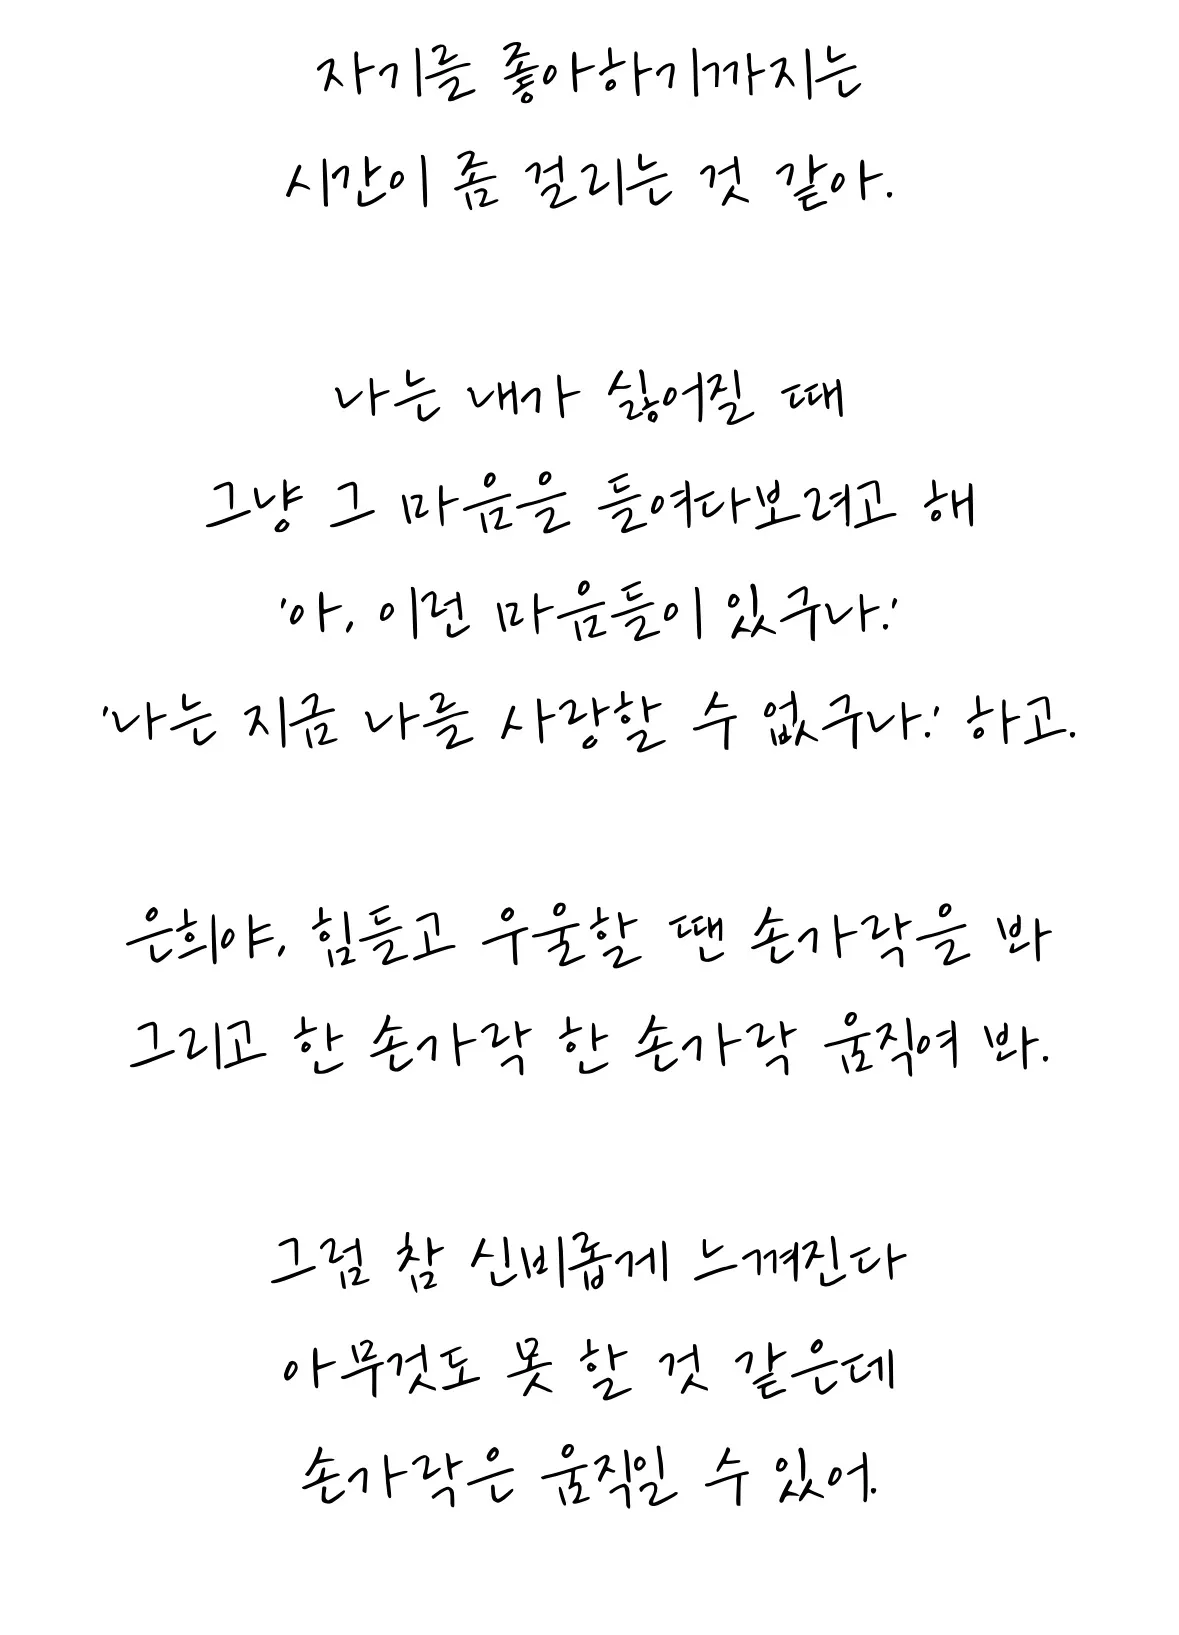 자기를 좋아하기까지는
시간이 좀 걸리는 것 같아.
나는 내가 싫어질 때
그냥 그 마음을 들여다보려고 해
'아, 이런 마음들이 있구나.'
'나는 지금 나를 사랑할 수 없구나.' 하고.
은희야, 힘들고 우울할 땐 손가락을 봐
그리고 한 손가락 한 손가락 움직여 봐.
그럼 참 신비롭게 느껴진다
아무것도 못 할 것 같은데
손가락은 움직일 수 있어.